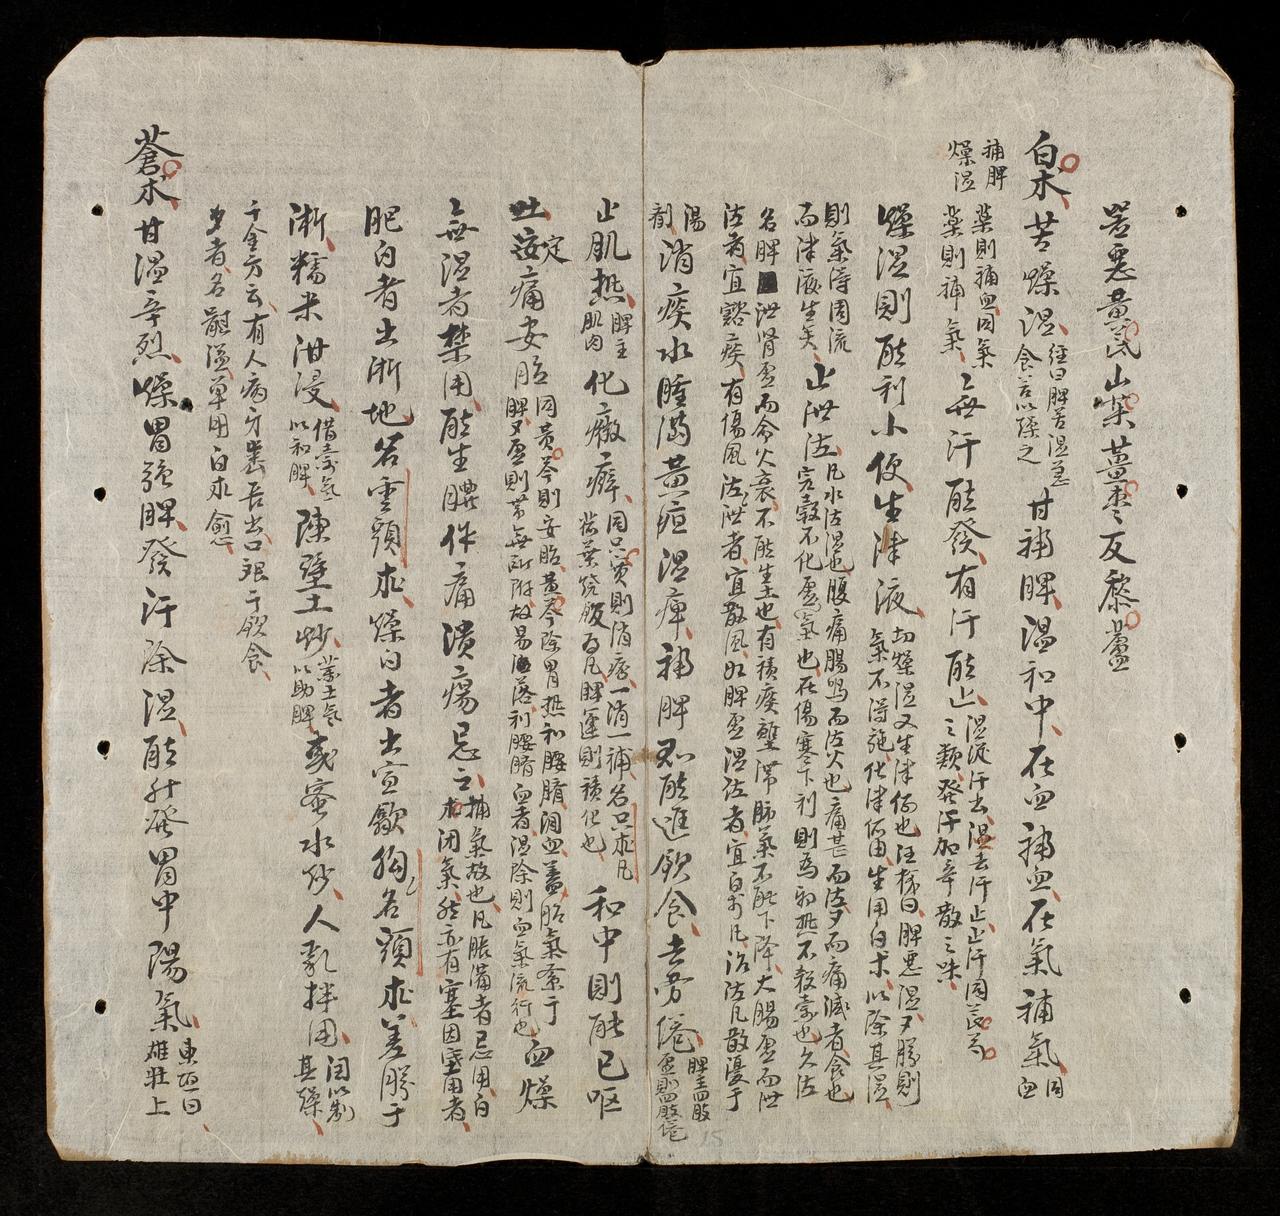 畏惡黃芪山柴薑棗反藜蘆
白朮苦燥濕經曰脾苦濕急食苦以燥之甘補脾溫和中在血補血在氣補氣同血
補脾燥濕
藥則補血同氣藥則補氣無汗能發有汗能止濕從汗去濕去汗止止汗同芪芍之類發汗加辛散之味
燥濕則能利小便生津液既燥濕又生津何也汪機曰脾惡濕濕勝則氣不得施化津何由生用白朮以除其濕
則氣得周流而津液生矣止泄瀉凡水瀉濕也腹痛腸鳴而瀉火也痛甚而瀉瀉而痛減者食也完穀不化虛氣也在傷寒下利則為邪熱不殺穀也久瀉
名脾泄腎虛而命火衰不能生土也有積痰壅滯肺氣不能下降大腸虛而泄
瀉者宜豁痰有傷風瀉泄者宜散風如脾虛濕瀉者宜白朮凡治瀉凡散湯丸于
湯劑消痰水腫滿黃疸濕痺補脾則能進飲食去勞倦脾主四肢虛則四肢倦
止肌熱脾主肌肉化癥癖同枳實則消痞一消一補名枳朮丸荷葉燒飯為丸脾運則積化也和中則能已嘔
吐定痛安胎同黃芩則安胎黃芩除胃熱利腰臍間血蓋胎氣系于脾脾虛則蒂無所附故易落利腰臍血者濕除則血氣流行也血燥
無濕者禁用能生膿作痛潰瘍忌之補氣故也凡脹滿者忌用白朮閉氣然亦有塞因塞用者
肥白者出浙地名雲頭朮燥白者出宣歙狗名頭朮差勝于
浙糯米泔浸借穀氣以和脾陳壁土炒藉土氣以助脾或蜜水炒人乳拌用潤以制其燥
千金方云有人病牙齒長出口艱于飲食
者名髓溢單用白朮愈
蒼朮甘溫辛烈燥胃強脾發汗除濕能升發胃中陽氣東垣曰雄壯上
15